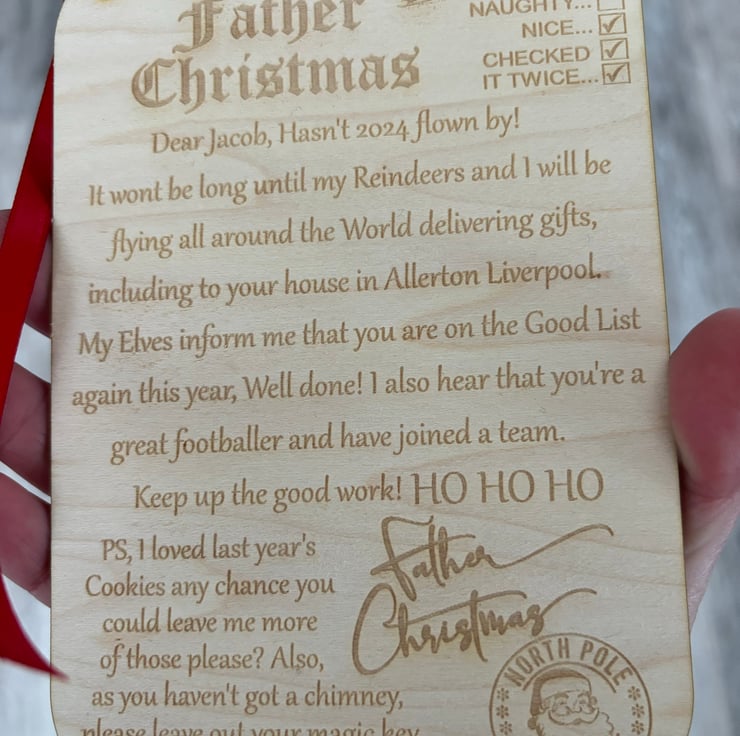 Father
Christmas
NAUGHTY...
NICE...
CHECKED
IT TWICE...
Dear Jacob, Hasn't 2024 flown by!
It wont be long until my Reindeers and I will be
flying all around the World delivering gifts,
including to your house in Allerton Liverpool.
My Elves inform me that you are on the Good List
again this year, Well done! I also hear that you're a
great footballer and have joined a team.
Keep up the good work! HO HO HO
PS, I loved last year's
Cookies any chance you
could leave me more
of those please? Also,
as you haven't got a chimney,
please leave out your magic key
Father
Christmas
NORTH POLE